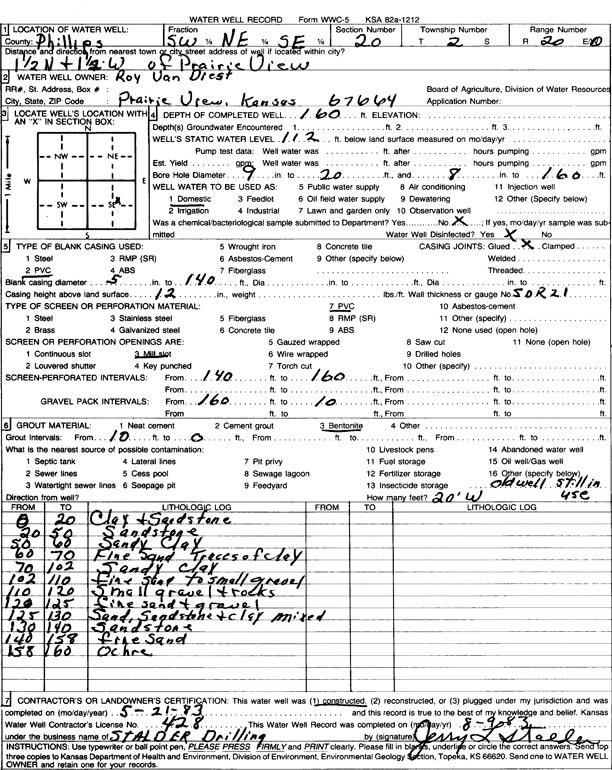 WATER WELL RECORD Form WWC-5 KSA 82a-1212
1 LOCATION OF WATER WELL: Fraction Section Number Township Number Range Number
County: Phillips SW ¼ NE ¼ SE ¼ 20 T 2 S R 20 E/W
Distance and direction from nearest town or city street address of well if located within city?
1½ N + 1½ W of Prairie View
2 WATER WELL OWNER: Roy Van Diest
RR#, St. Address, Box # : Board of Agriculture, Division of Water Resources
City, State, ZIP Code : Prairie View, Kansas 67664 Application Number:
3 LOCATE WELL'S LOCATION WITH AN "X" IN SECTION BOX:
N
NW NE
W E
SW SE
S
1 Mile
4 DEPTH OF COMPLETED WELL 160 ft. ELEVATION:
Depth(s) Groundwater Encountered 1. ft. 2. ft. 3. ft.
WELL'S STATIC WATER LEVEL 112 ft. below land surface measured on mo/day/yr
Pump test data: Well water was ft. after hours pumping gpm
Est. Yield gpm: Well water was ft. after hours pumping gpm
Bore Hole Diameter 9 in. to 20 ft., and 8 in. to 160 ft.
WELL WATER TO BE USED AS: 5 Public water supply 8 Air conditioning 11 Injection well
1 Domestic 3 Feedlot 6 Oil field water supply 9 Dewatering 12 Other (Specify below)
2 Irrigation 4 Industrial 7 Lawn and garden only 10 Observation well
Was a chemical/bacteriological sample submitted to Department? Yes No X ; If yes, mo/day/yr sample was sub-
mitted Water Well Disinfected? Yes X No
5 TYPE OF BLANK CASING USED: 5 Wrought iron 8 Concrete tile CASING JOINTS: Glued X Clamped
1 Steel 3 RMP (SR) 6 Asbestos-Cement 9 Other (specify below) Welded
2 PVC 4 ABS 7 Fiberglass Threaded
Blank casing diameter 5 in. to 140 ft., Dia in. to ft., Dia in. to ft.
Casing height above land surface 12 in., weight lbs./ft. Wall thickness or gauge No SDR21
TYPE OF SCREEN OR PERFORATION MATERIAL: 7 PVC 10 Asbestos-cement
1 Steel 3 Stainless steel 5 Fiberglass 8 RMP (SR) 11 Other (specify)
2 Brass 4 Galvanized steel 6 Concrete tile 9 ABS 12 None used (open hole)
SCREEN OR PERFORATION OPENINGS ARE: 5 Gauzed wrapped 8 Saw cut 11 None (open hole)
1 Continuous slot 3 Mill slot 6 Wire wrapped 9 Drilled holes
2 Louvered shutter 4 Key punched 7 Torch cut 10 Other (specify)
SCREEN-PERFORATED INTERVALS: From 140 ft. to 160 ft., From ft. to ft.
From ft. to ft., From ft. to ft.
GRAVEL PACK INTERVALS: From 160 ft. to 10 ft., From ft. to ft.
From ft. to ft., From ft. to ft.
6 GROUT MATERIAL: 1 Neat cement 2 Cement grout 3 Bentonite 4 Other
Grout Intervals: From 10 ft. to 0 ft., From ft. to ft., From ft. to ft.
What is the nearest source of possible contamination: 10 Livestock pens 14 Abandoned water well
1 Septic tank 4 Lateral lines 7 Pit privy 11 Fuel storage 15 Oil well/Gas well
2 Sewer lines 5 Cess pool 8 Sewage lagoon 12 Fertilizer storage 16 Other (specify below)
3 Watertight sewer lines 6 Seepage pit 9 Feedyard 13 Insecticide storage old well still in use
Direction from well? How many feet? 20' W
FROM TO LITHOLOGIC LOG FROM TO LITHOLOGIC LOG
0 20 Clay + Sandstone
20 50 Sandstone
50 60 Sandy Clay
60 70 Fine Sand Traces of clay
70 102 Sandy Clay
102 110 fine sand to small gravel
110 120 Small gravel + rocks
120 125 fine sand + gravel
125 130 Sand, Sandstone + clay mixed
130 140 Sandstone
140 158 fine Sand
158 160 Ochre
7 CONTRACTOR'S OR LANDOWNER'S CERTIFICATION: This water well was (1) constructed, (2) reconstructed, or (3) plugged under my jurisdiction and was
completed on (mo/day/year) 5-21-83 and this record is true to the best of my knowledge and belief. Kansas
Water Well Contractor's License No. 428 This Water Well Record was completed on (mo/day/yr) 8-9-83
under the business name of STALDER Drilling by (signature)
INSTRUCTIONS: Use typewriter or ball point pen, PLEASE PRESS FIRMLY and PRINT clearly. Please fill in blanks, underline or circle the correct answers. Send top
three copies to Kansas Department of Health and Environment, Division of Environment, Environmental Geology Section, Topeka, KS 66620. Send one to WATER WELL
OWNER and retain one for your records.